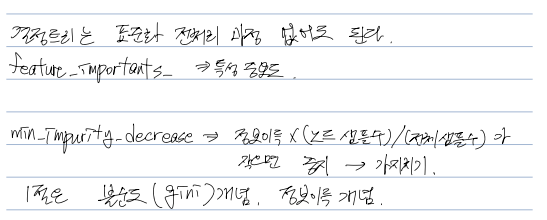 결정트리는 표준화 전처리 과정 없어도 된다.
feature_importants_ ⇒ 특성 중요도.
min_impurity_decrease ⇒ 정보이득 × (노드 샘플수) / (전체샘플수) 가
작으면 중지 → 가지치기.
1절은 불순도 (gini) 개념. 정보이득 개념.